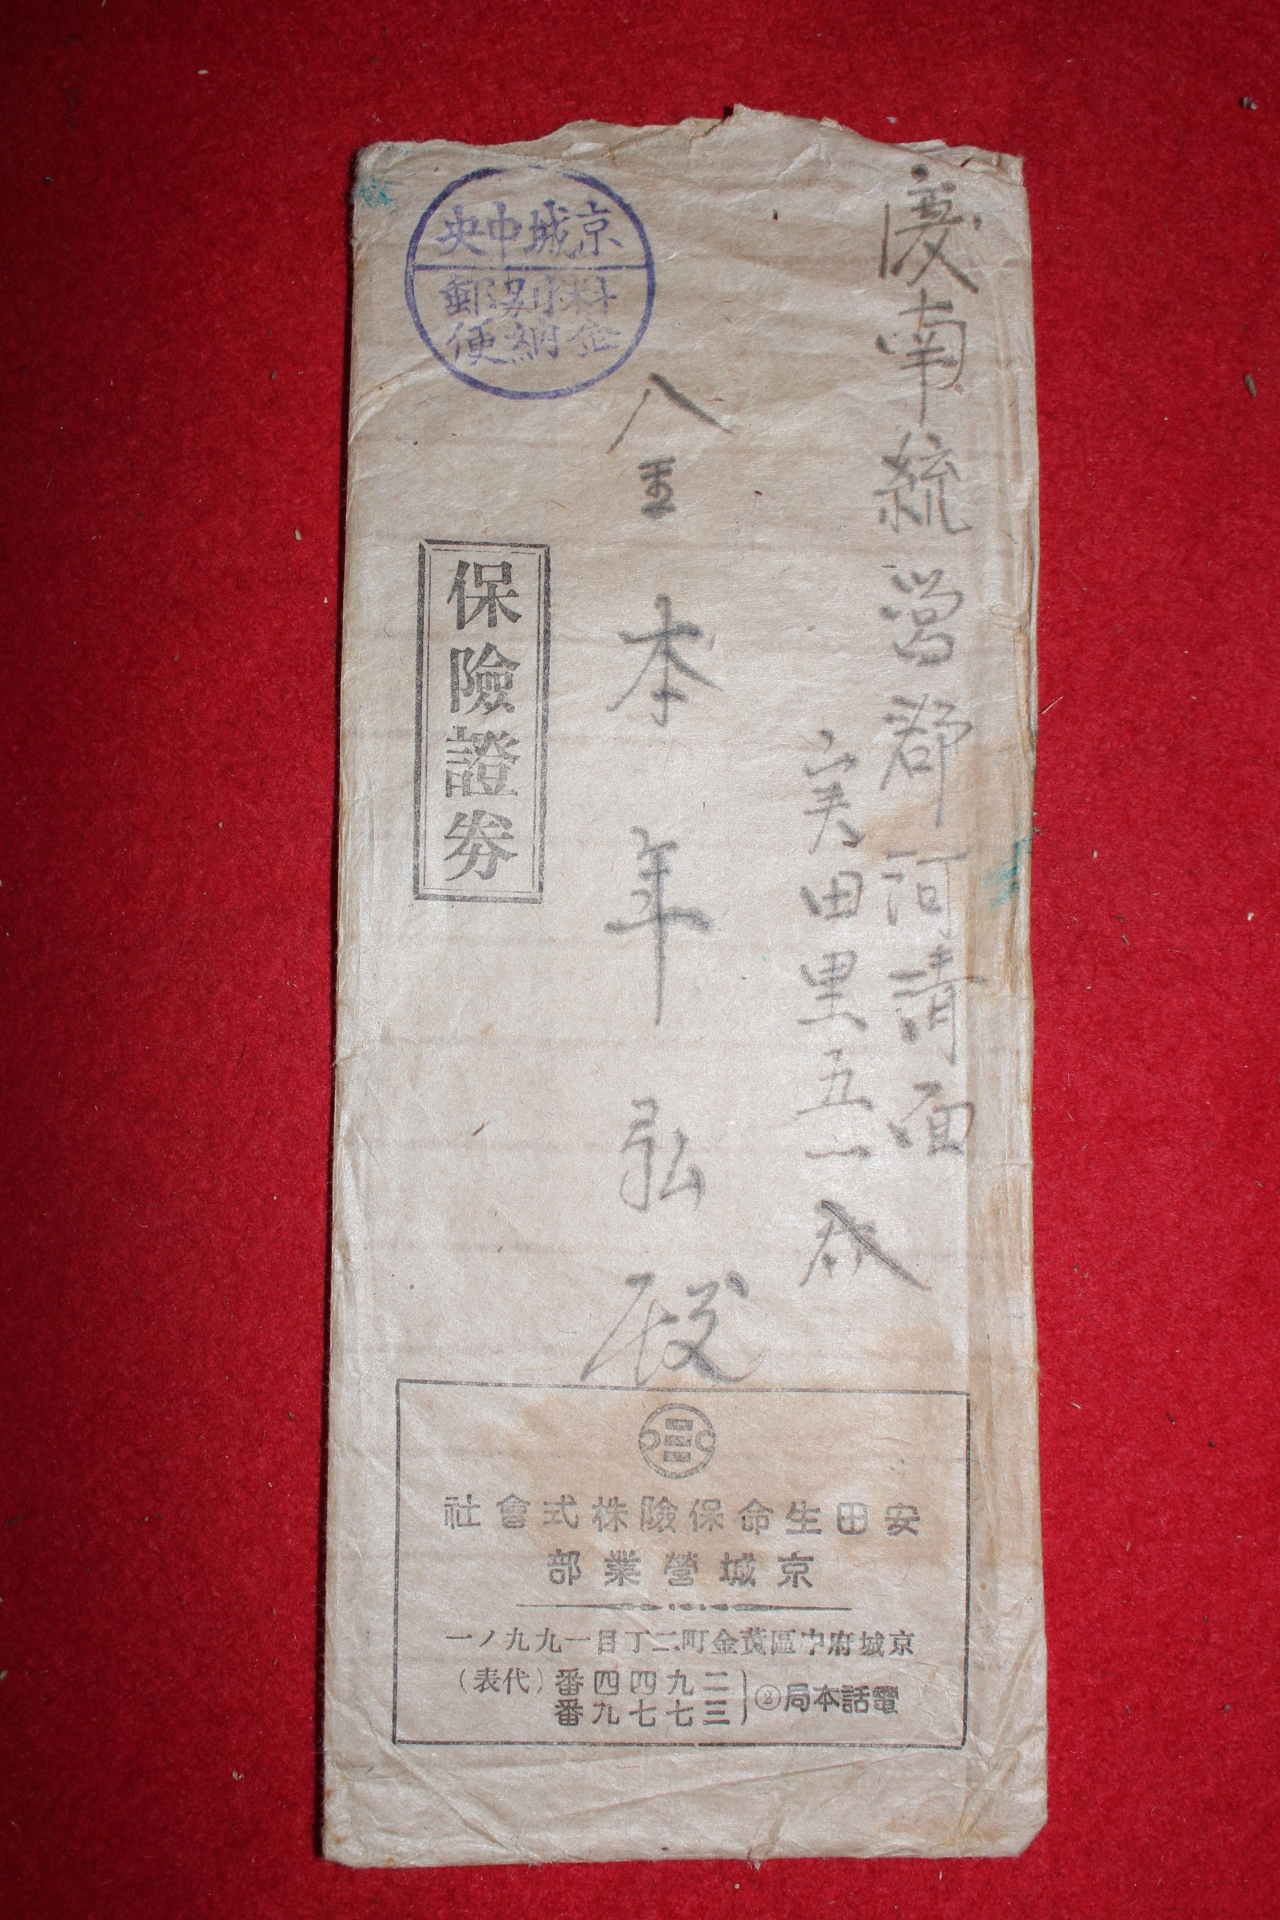 慶南統營郡河清面
実田里五一
金本年弘殿
保險證券
京城中央
料金
別納
郵便
安田生命保險株式會社
京城營業部
京城府中區黃金町二丁目一九九ノ一
電話本局②
二九四四番（代表）
三七七九番